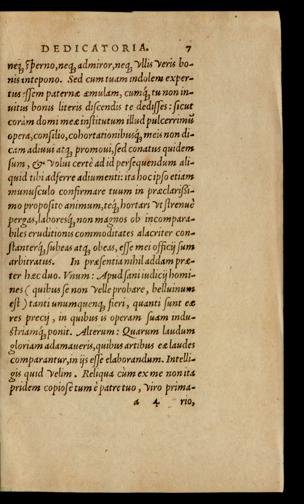 DEDICATORIA. 7
neq́; sperno, neq́; admiror, neq́; vllis veris bo-
nis antepono. Sed cum tuam indolem exper-
tus essem paternæ æmulam, cumq́; tu non in-
uitus bonis literis discendis te dedisses: sicut
coràm domi meæ institutum illud pulcerrimũ
opera, consilio, cohortationibusq́; meis non di-
cam adiuui atq́; promoui, sed conatus quidem
sum, & volui certè ad id persequendum ali-
quid tibi adferre adiumenti: ita hoc ipso etiam
munusculo confirmare tuum in præclarissi-
mo proposito animum, teq́; hortari vt strenuè
pergas, laboresq́; non magnos ob incompara-
biles eruditionis commoditates alacriter con-
stanterq́; subeas atq́; obeas, esse mei officij sum
arbitratus. In præsentia nihil addam præ-
ter hæc duo. Vnum: Apud sani iudicij homi-
nes (quibus se non velle probare, belluinum
est) tanti unumquenq́; fieri, quanti sunt eæ
res precij, in quibus is operam suam indu-
striamq́; ponit. Alterum: Quarum laudum
gloriam adamaueris, quibus artibus eæ laudes
comparantur, in ijs esse elaborandum. Intelli-
gis quid velim. Reliqua cùm ex me non ita
pridem copiosè tum è patre tuo, viro prima-
a 4 rio,